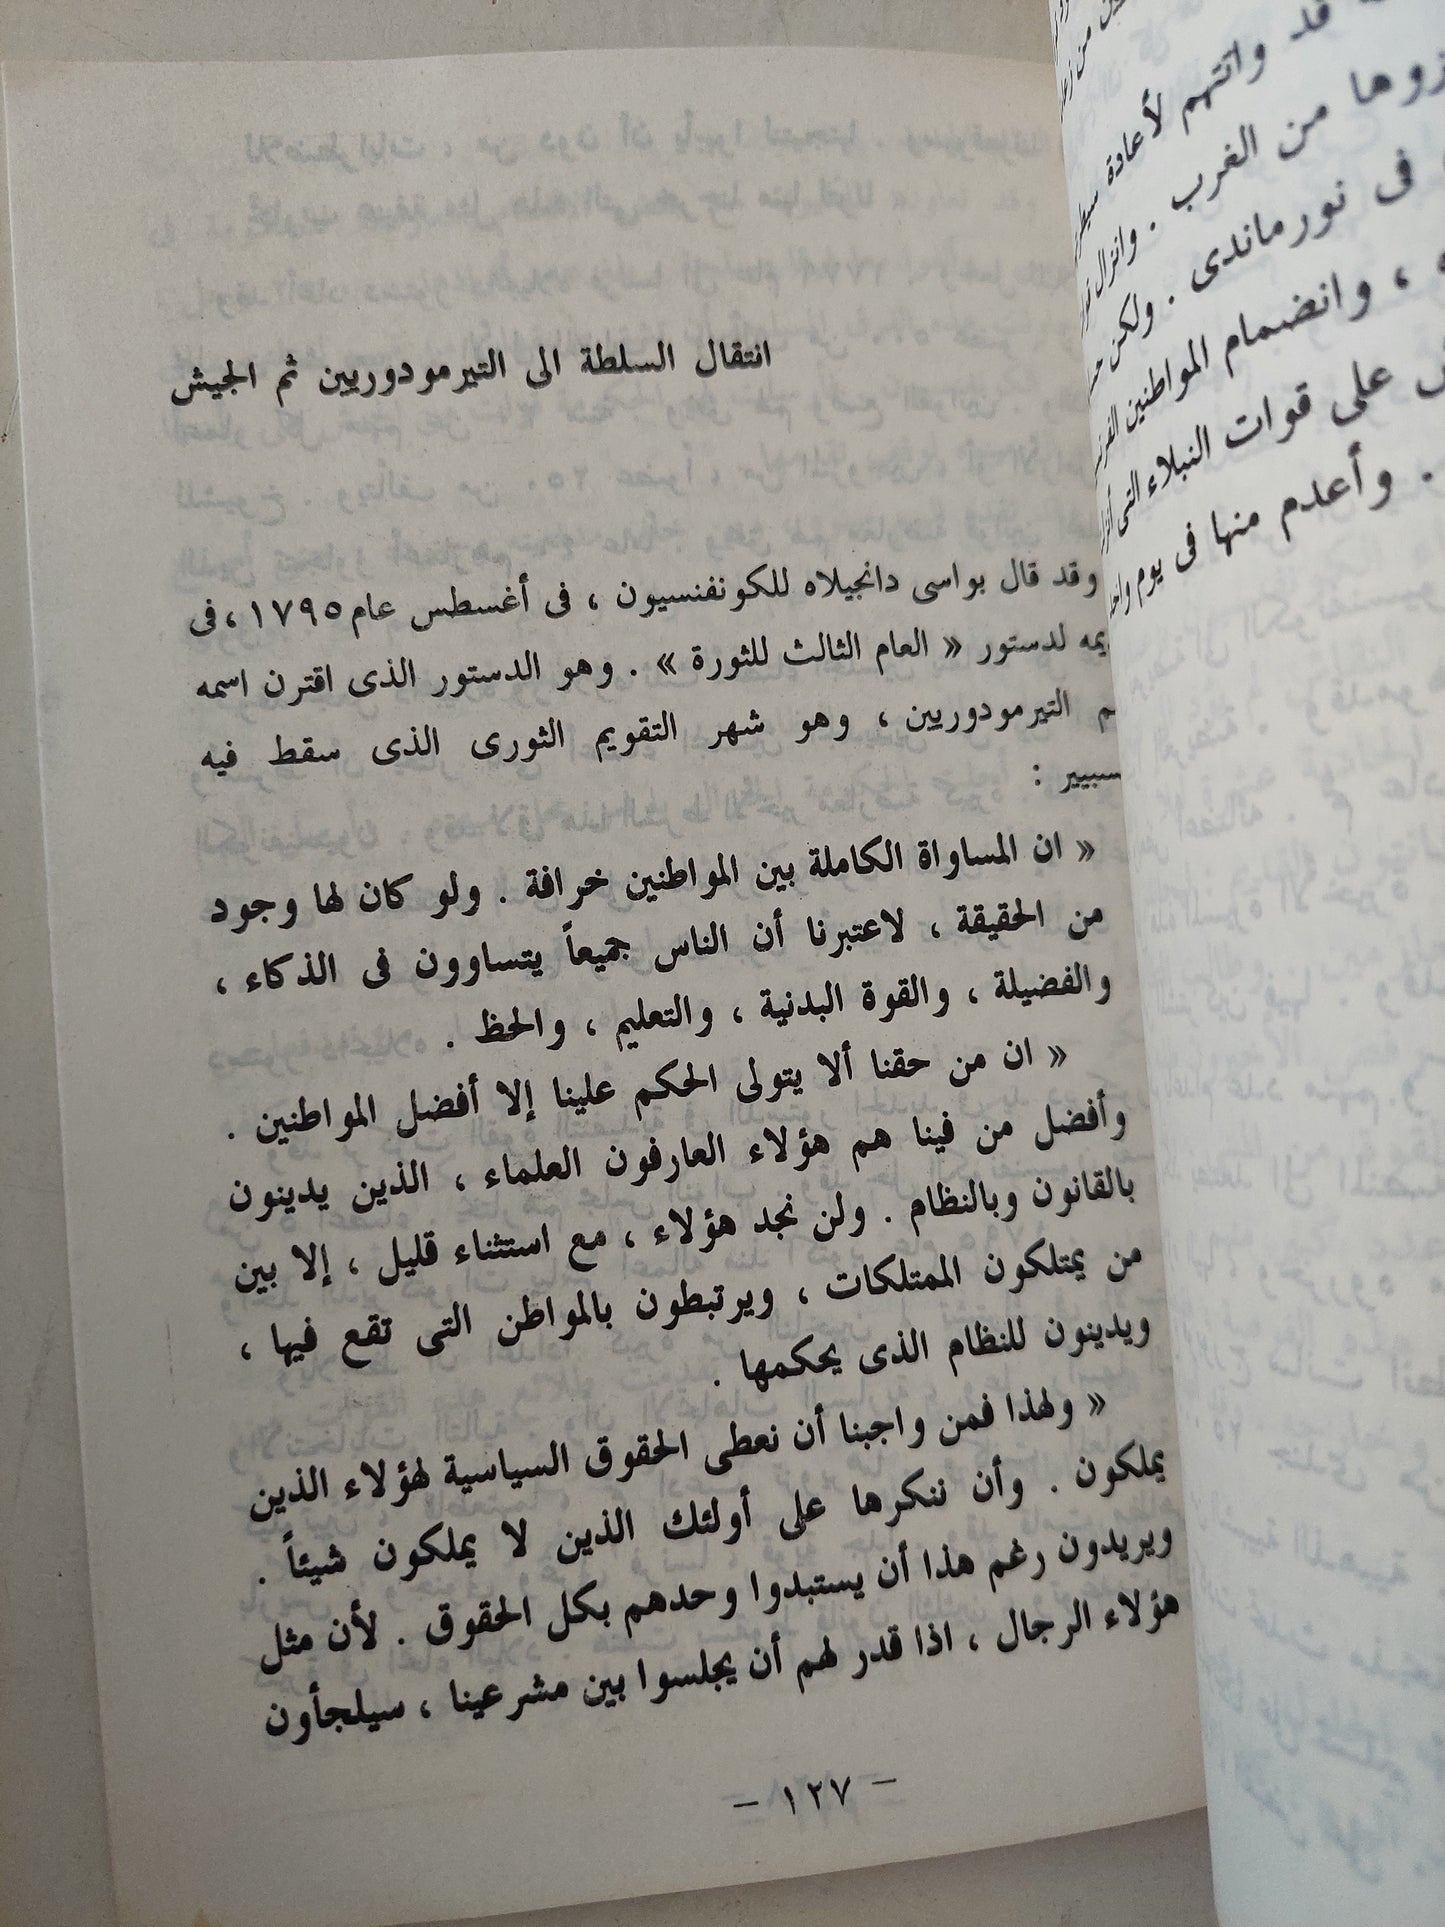 انتقال السلطة الى التيرمودوريين ثم الجيش
وقد قال بواسى دانجيلاه للكونفنسيون ، فى أغسطس عام ١٧٩٥ ، فى
يمه لدستور « العام الثالث للثورة » . وهو الدستور الذى اقترن اسمه
م التيرمودوريين ، وهو شهر التقويم الثورى الذى سقط فيه
سبيير :
« ان المساواة الكاملة بين المواطنين خرافة . ولو كان لها وجود
من الحقيقة ، لاعتبرنا أن الناس جميعاً يتساوون فى الذكاء ،
والفضيلة ، والقوة البدنية ، والتعليم ، والحظ .
« ان من حقنا ألا يتولى الحكم علينا إلا أفضل المواطنين .
وأفضل من فينا هم هؤلاء العارفون العلماء ، الذين يدينون
بالقانون وبالنظام . ولن نجد هؤلاء ، مع استثناء قليل ، إلا بين
من يمتلكون الممتلكات ، ويرتبطون بالمواطن التى تقع فيها ،
ويدينون للنظام الذى يحكمها .
« ولهذا فمن واجبنا أن نعطى الحقوق السياسية لهؤلاء الذين
يملكون . وأن ننكرها على أولئك الذين لا يملكون شيئاً .
ويريدون رغم هذا أن يستبدوا وحدهم بكل الحقوق . لأن مثل
هؤلاء الرجال ، اذا قدر لهم أن يجلسوا بين مشرعينا ، سيلجأون
– ١٢٧ –
قد واتتهم لأعادة
من الغرب . وانزال
فى نورماندى . ولكن
، وانضمام المواطنين
على قوات النبلاء التى
. وأعدم منها فى يوم